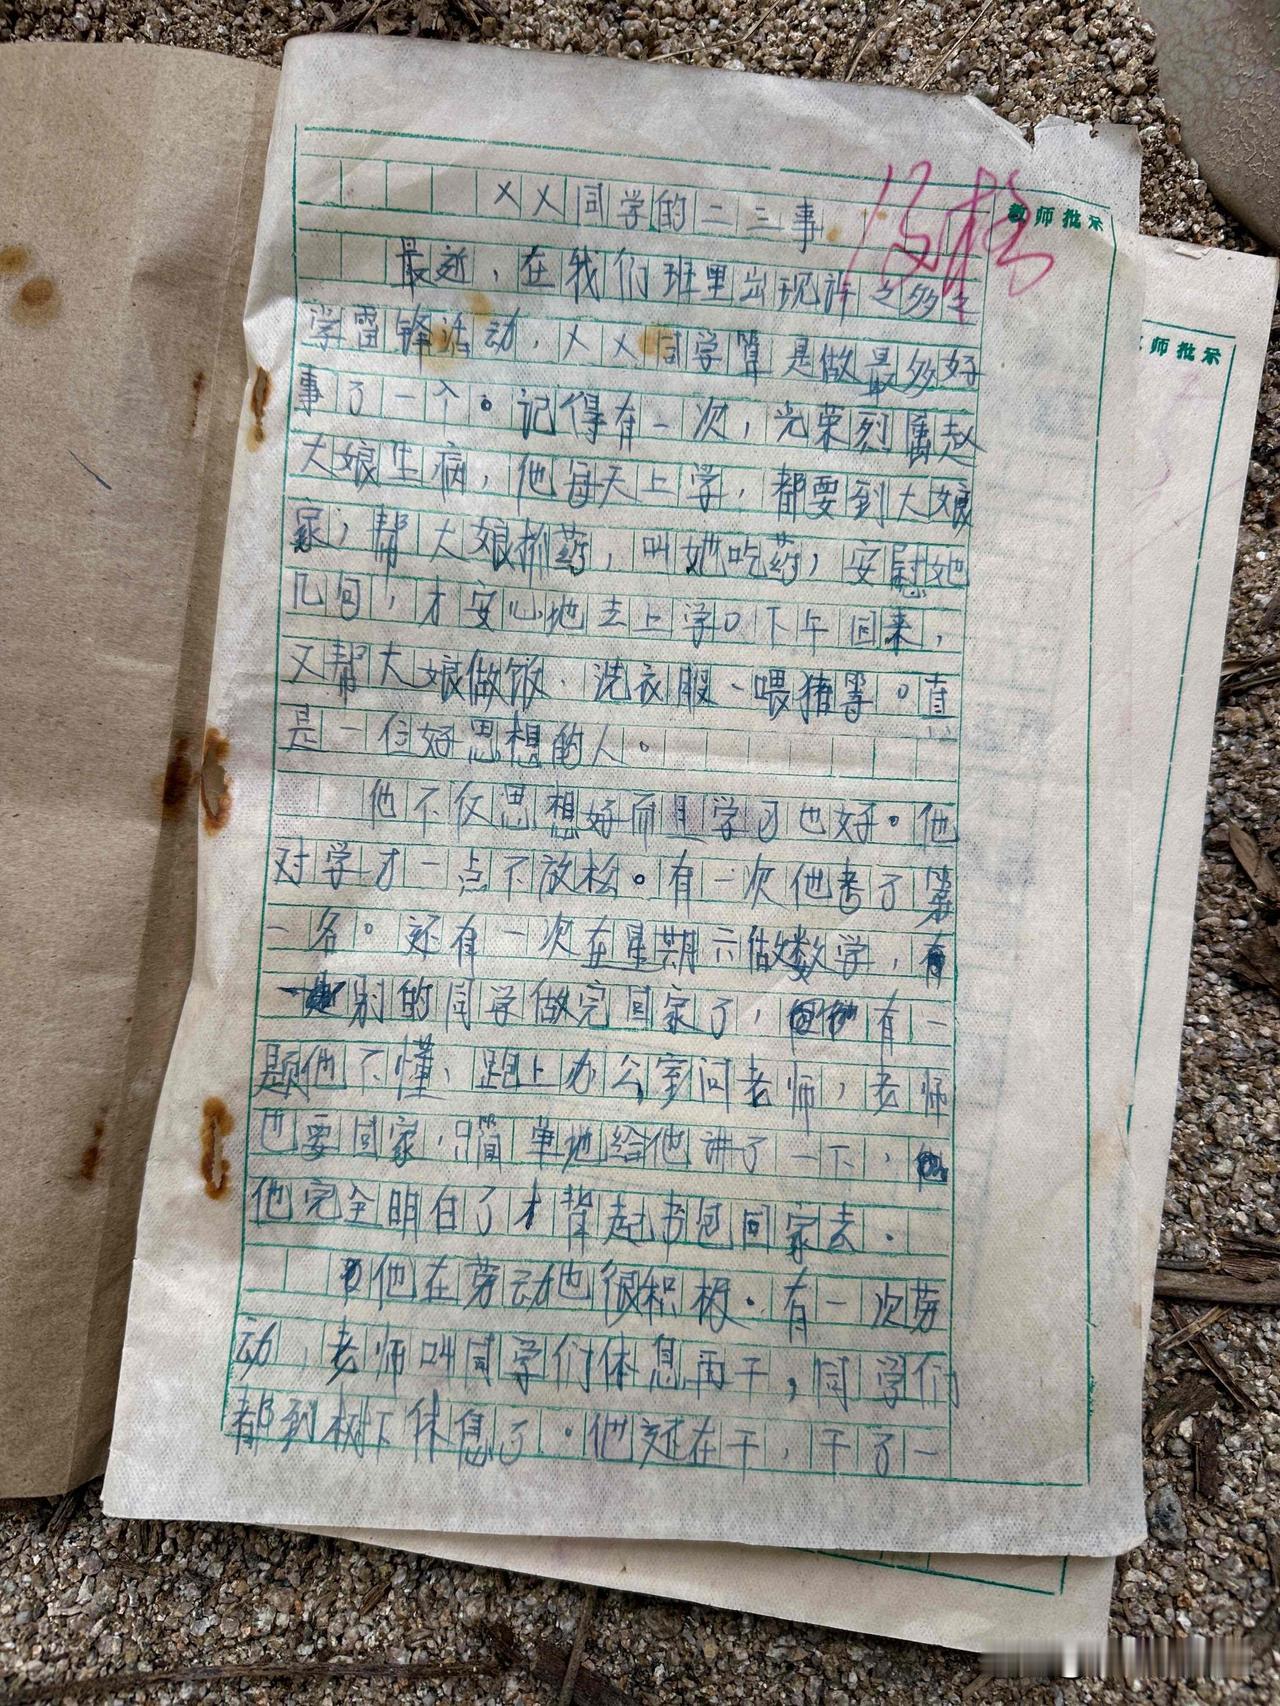 教师批示
××同学的二三事
最近，在我们班里出现许之多之
学雷锋活动，××同学算是做最多好
事了一个。记得有一次，光荣烈属赵
大娘生病，他每天上学，都要到大娘
家，帮大娘抓药，叫她吃药，安慰她
几句，才安心地去上学。下午回来，
又帮大娘做饭、洗衣服、喂猪等。真
是一位好思想的人。
他不仅思想好而且学习也好。他
对学才一点不放松。有一次他考了第
一名。还有一次在星期六做数学，有
别的同学做完回家了，有一
题他不懂、跑上办公室问老师，老师
也要回家，只简单地给他讲了一下，
他完全明白了才背起书包回家去.
他在劳动也很积极.有一次劳
动，老师叫同学们休息再干，同学们
都到树下休息了.他还在干，干了一
师批示